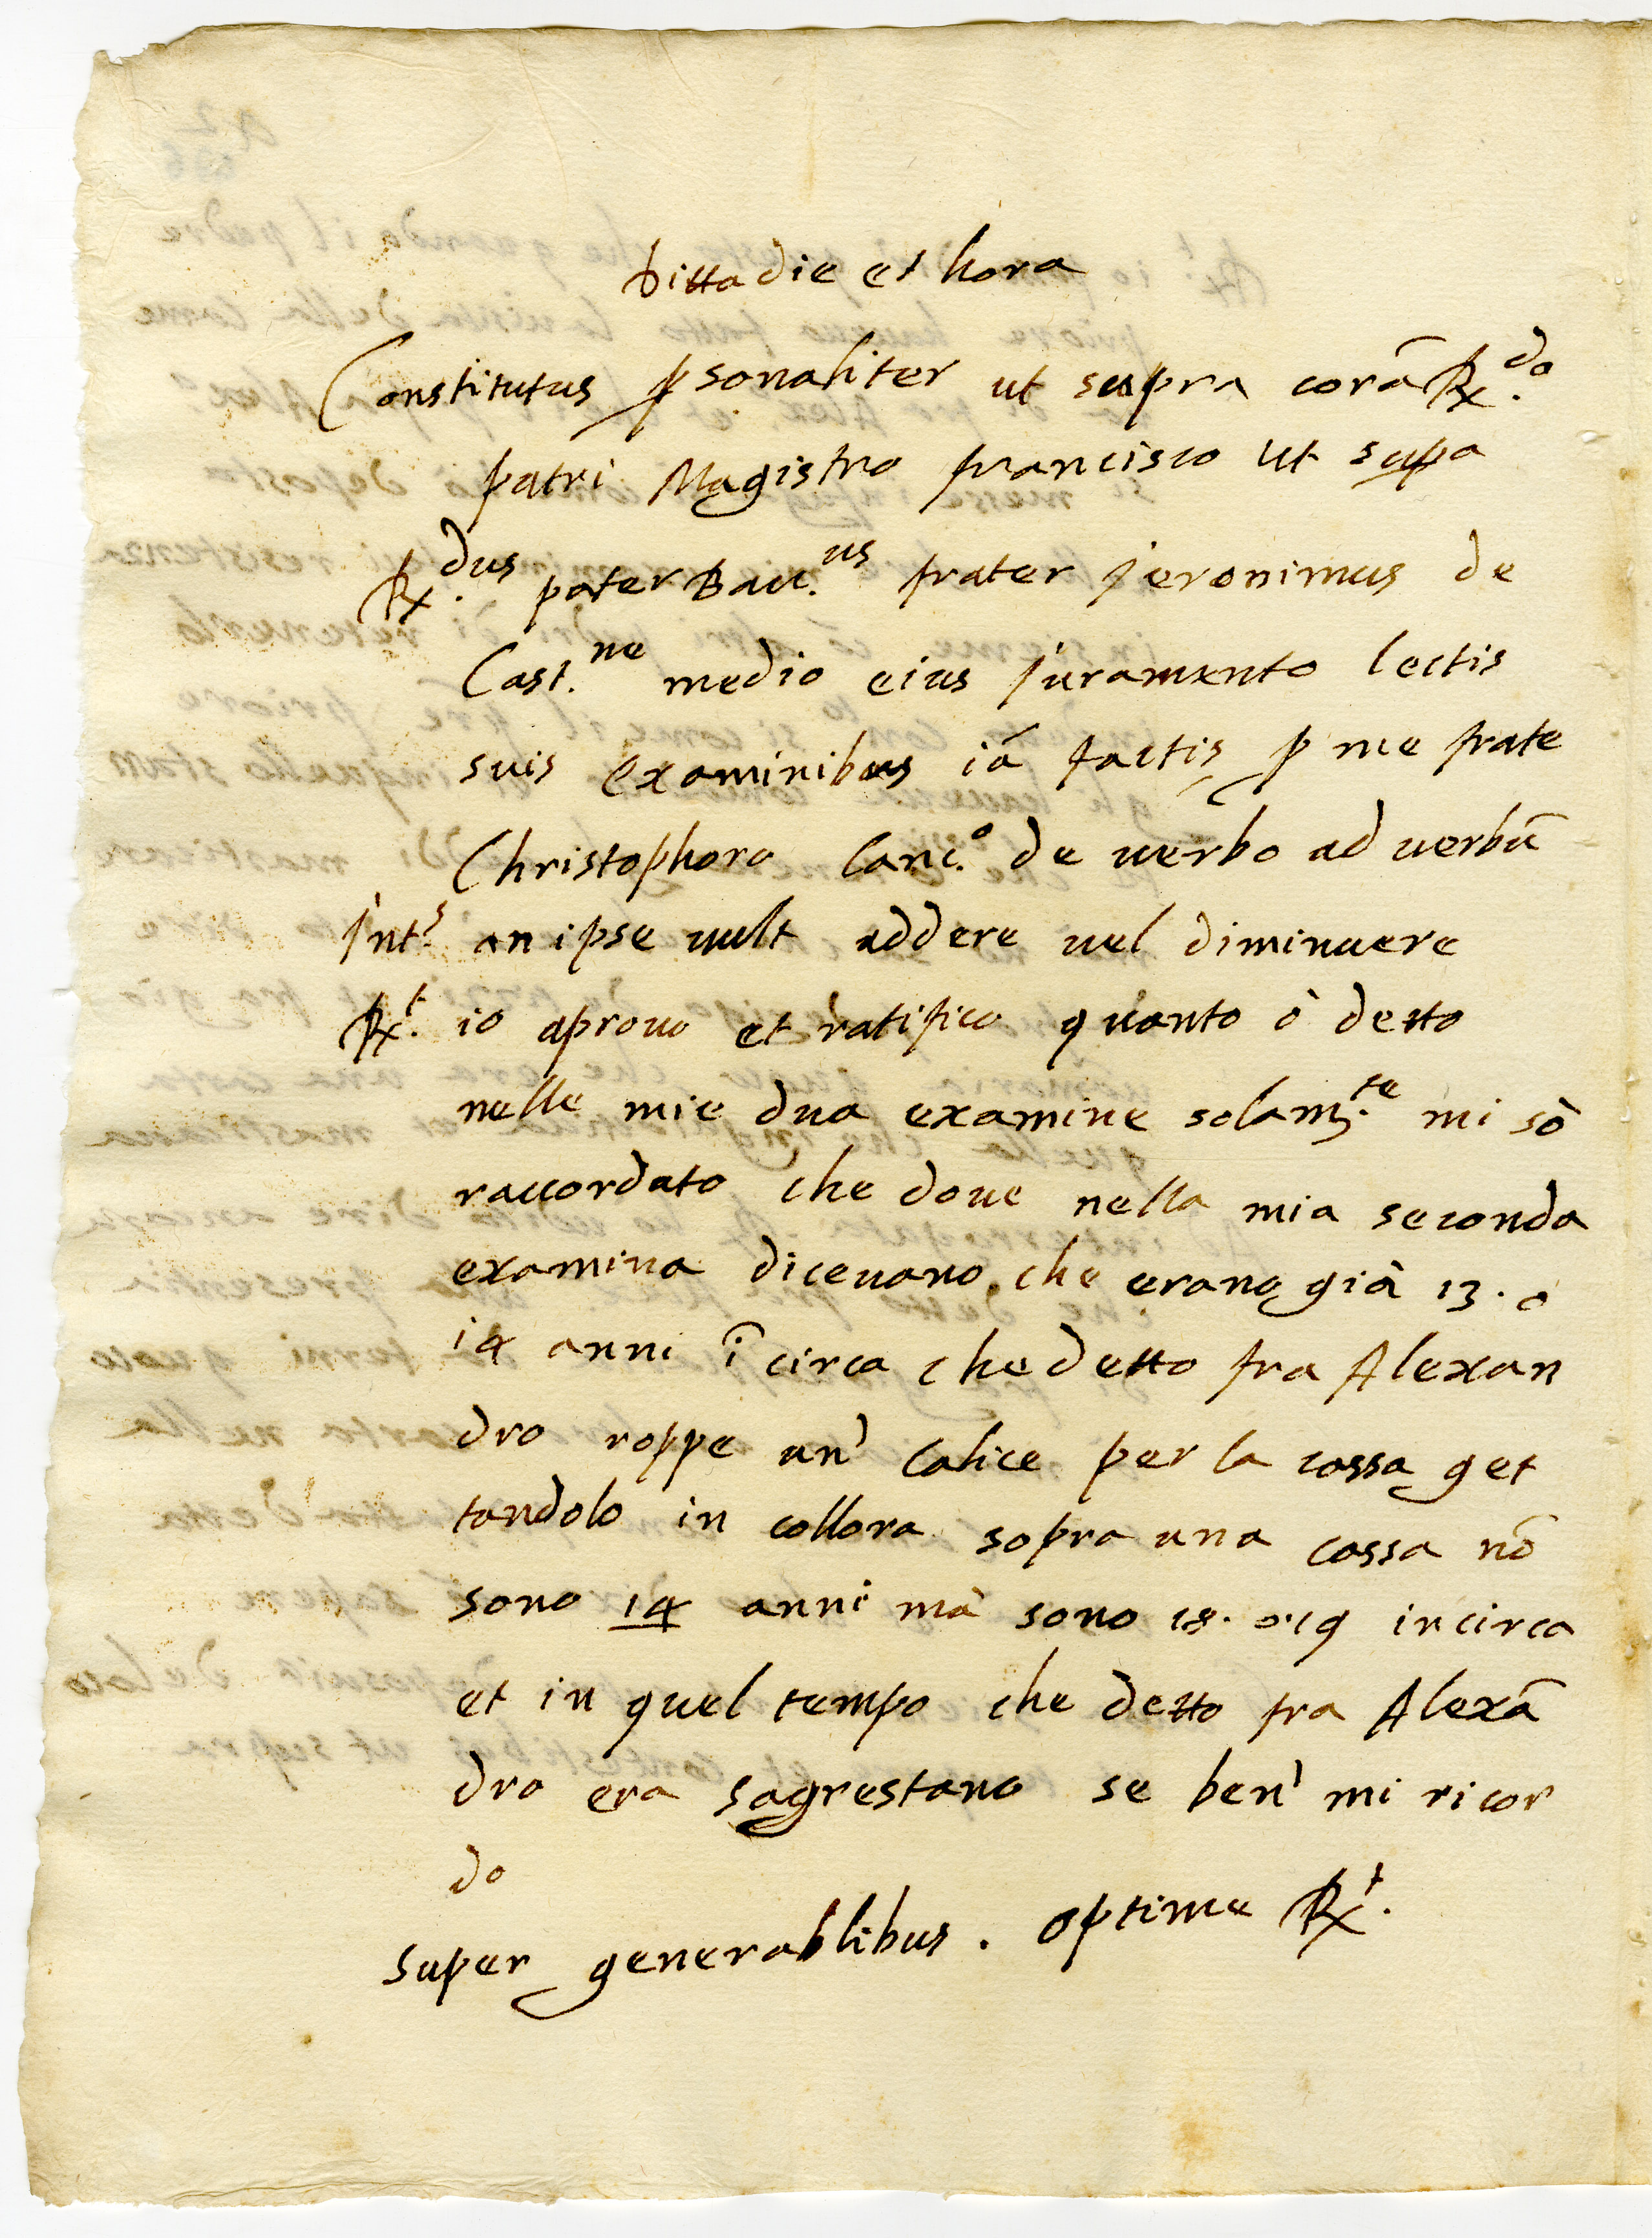 Ditta die et hora
Constitutus ꝑsonaliter ut supra corā R.do
patri Magistro francisco ut supa
R.dus pater Bacc.us frater jeronimus de
Cast.ne medio eius juramento lectis
suis examinibus iā factis ꝑ me frate
Christophoro Canc.o de uerbo ad uerbū
jnt.s an ipse uult addere uel diminuere
R.t io aprouo et ratifico quanto ò detto
nelle mie dua examine solam.te mi sò
raccordato che doue nella mia seconda
examina diceuano che erano già 13. o
14 anni ī circa che detto fra Alexan
dro roppe un' Calice per la cossa get
tandolo in collora sopra una cassa nō
sono 14 anni mà sono 18. o 19 incirca
et in quel tempo che detto fra Alexā
dro era sagrestano se ben' mi ricor
do
super generablibus. optime R.t